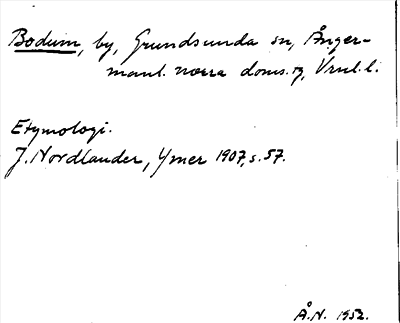 Bodum, by, Grundsunda sn, Ånger-
manl. norra doms. tg, Vrnl. l.
Etymologi.
J. Nordlander, Ymer 1907, s. 57.
Å.N. 1952.